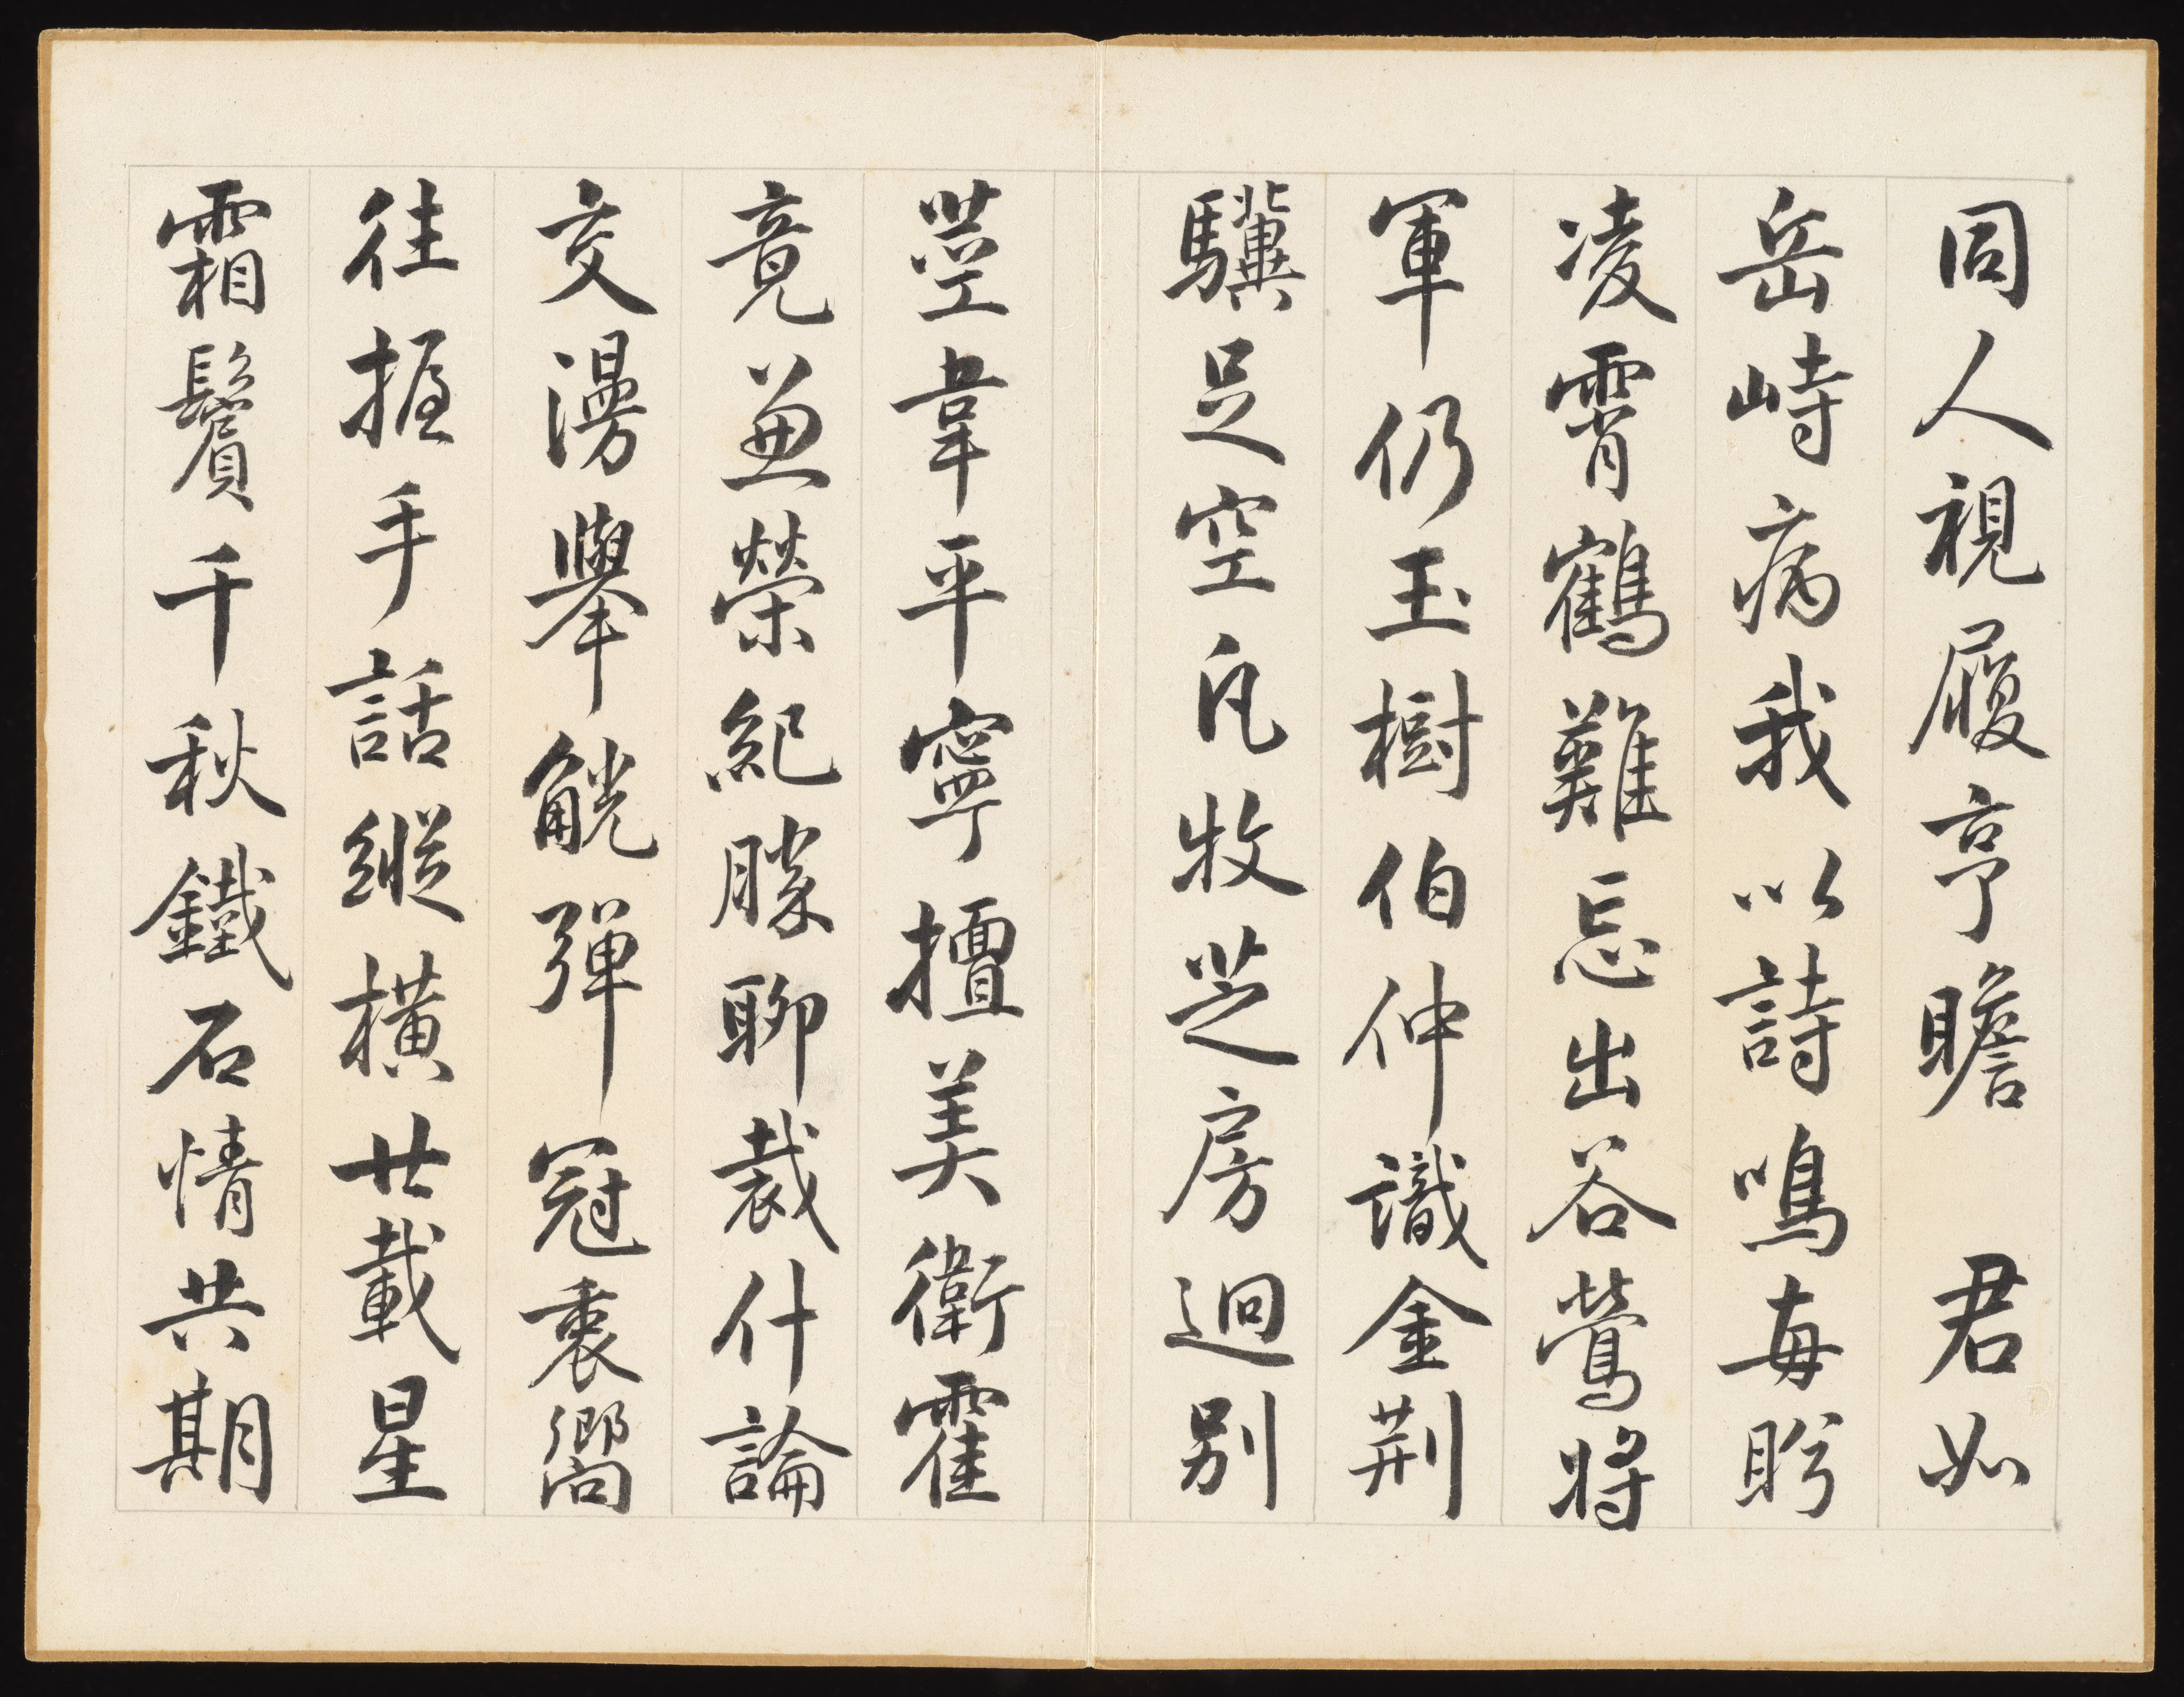 同人視履亨瞻　君如
岳峙病我以詩鳴每盼
凌霄鶴難忘出谷鶯將
軍仍玉樹伯仲識金荆
驥足空凡牧芝房迥別
莖韋平寧擅美衛霍
竟兼榮紀勝聊裁什論
交漫舉觥彈冠衷嚮
往握手話縱橫廿載星
霜鬢千秋鐵石情共期